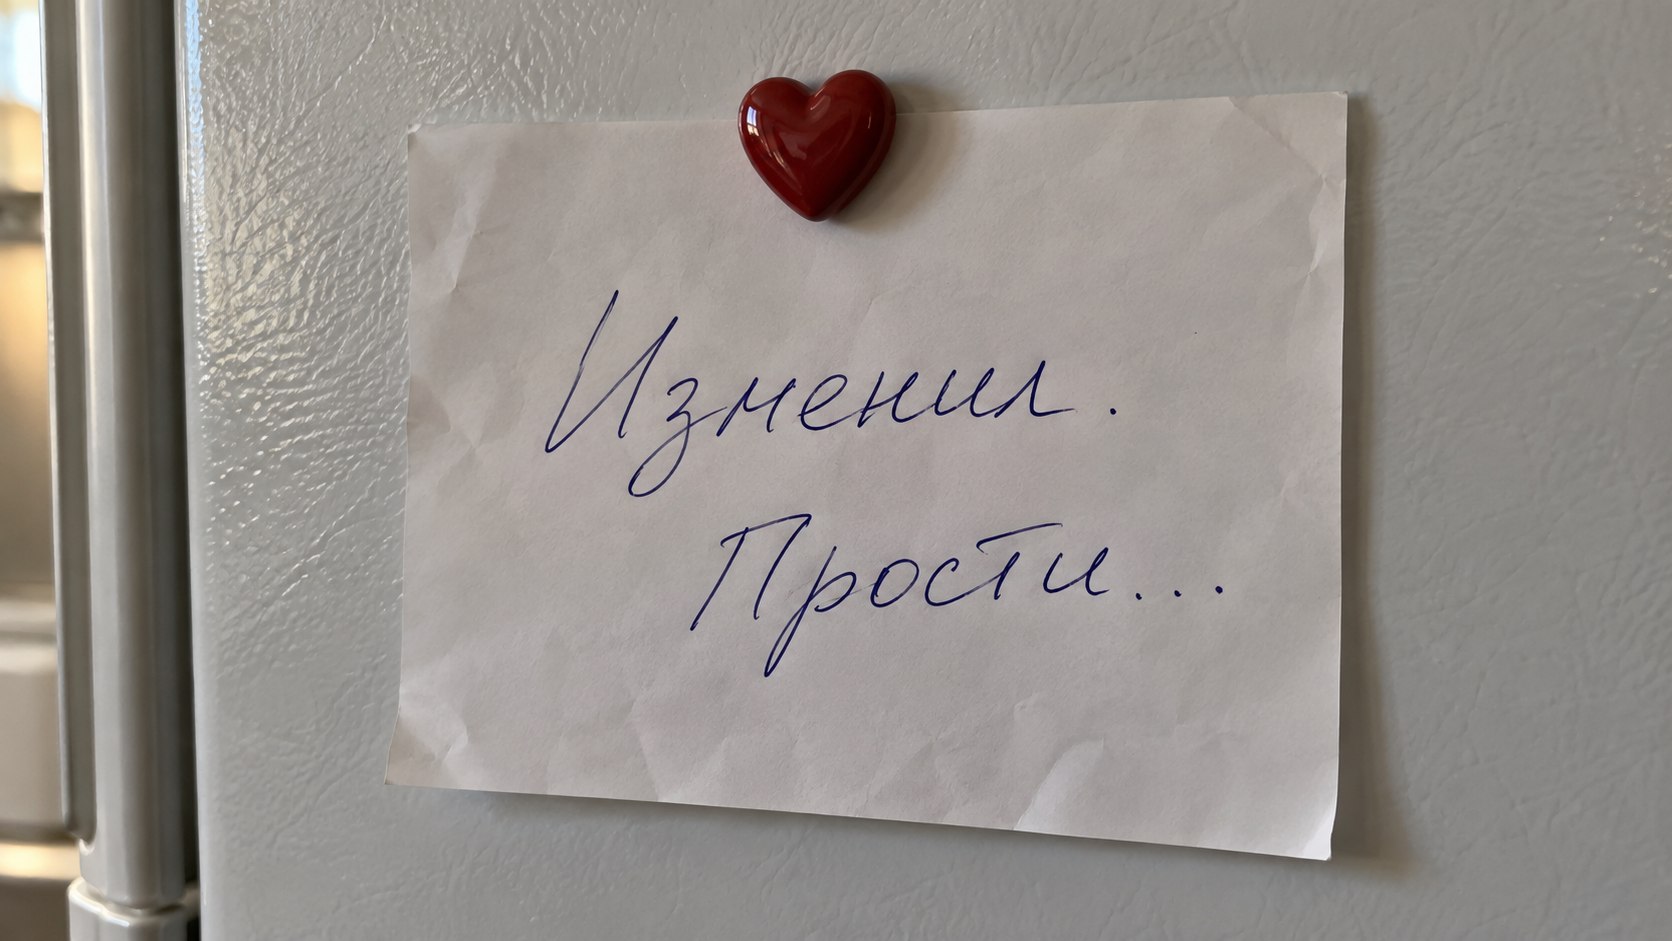 Изменил.
Прости...